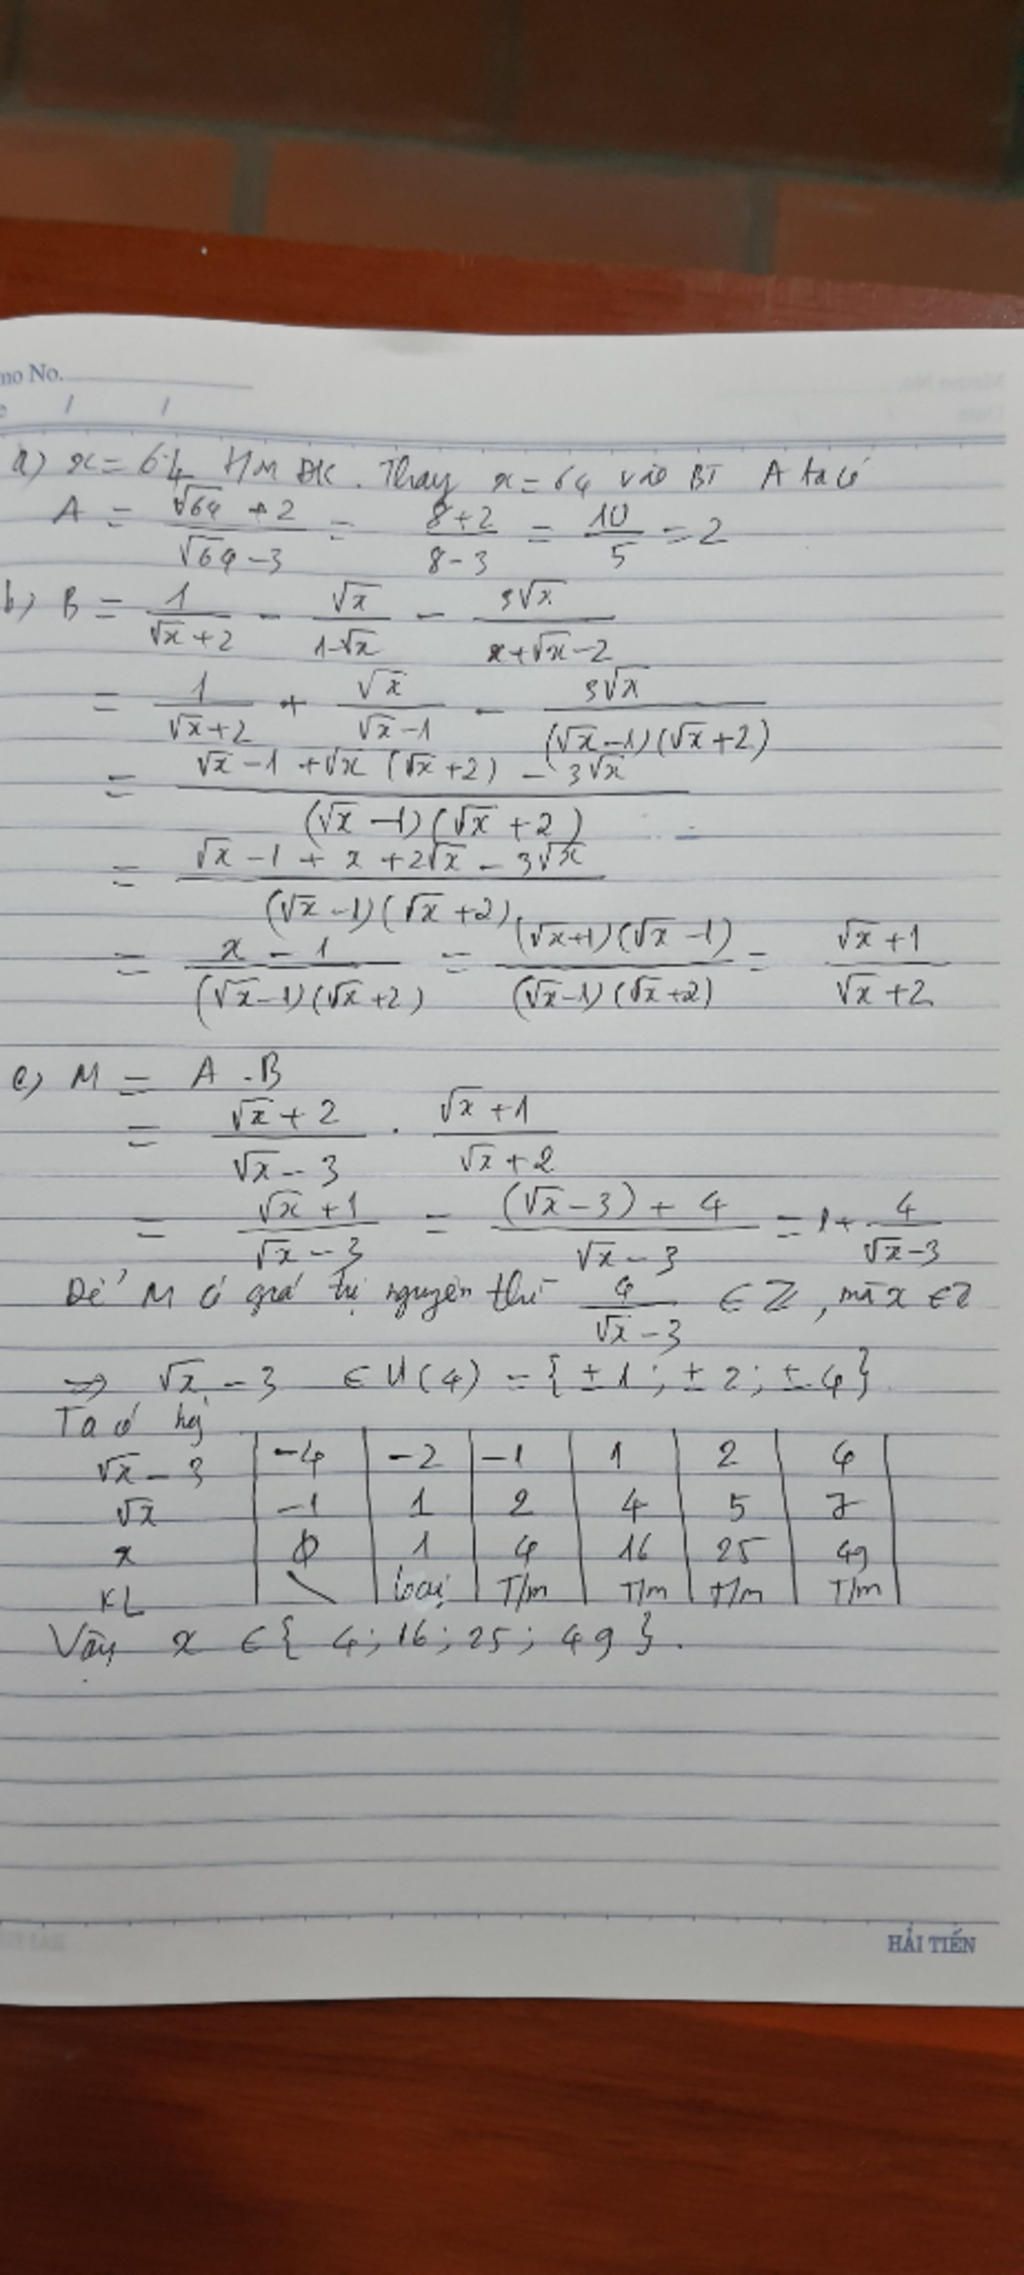 no No.
a) x = 64 TM ĐK. Thay x = 64 vào BT A ta có
A = (√64 + 2)/(√64 - 3) = (8+2)/(8-3) = 10/5 = 2
b) B = 1/(√x + 2) - √x/(1-√x) - 3√x/(x+√x-2)
= 1/(√x+2) + √x/(√x-1) - 3√x/((√x-1)(√x+2))
= (√x - 1 + √x (√x+2) - 3√x)/((√x-1)(√x+2))
= (√x - 1 + x + 2√x - 3√x)/((√x-1)(√x+2))
= (x - 1)/((√x-1)(√x+2)) = ((√x+1)(√x-1))/((√x-1)(√x+2)) = (√x+1)/(√x+2)
c) M = A . B
= (√x+2)/(√x-3) . (√x+1)/(√x+2)
= (√x+1)/(√x-3) = ((√x-3)+4)/(√x-3) = 1 + 4/(√x-3)
Để M có giá trị nguyên thì 4/(√x-3) ∈ Z, mà x ∈ Z
⇒ √x - 3 ∈ Ư(4) = {±1; ±2; ±4}
Ta có
√x - 3 | -4 | -2 | -1 | 1 | 2 | 4
√x | -1 | 1 | 2 | 4 | 5 | 7
x | ∅ | 1 | 4 | 16 | 25 | 49
KL | \ | loại | T/m | T/m | T/m | T/m
Vậy x ∈ { 4; 16; 25; 49 }.
HẢI TIẾN